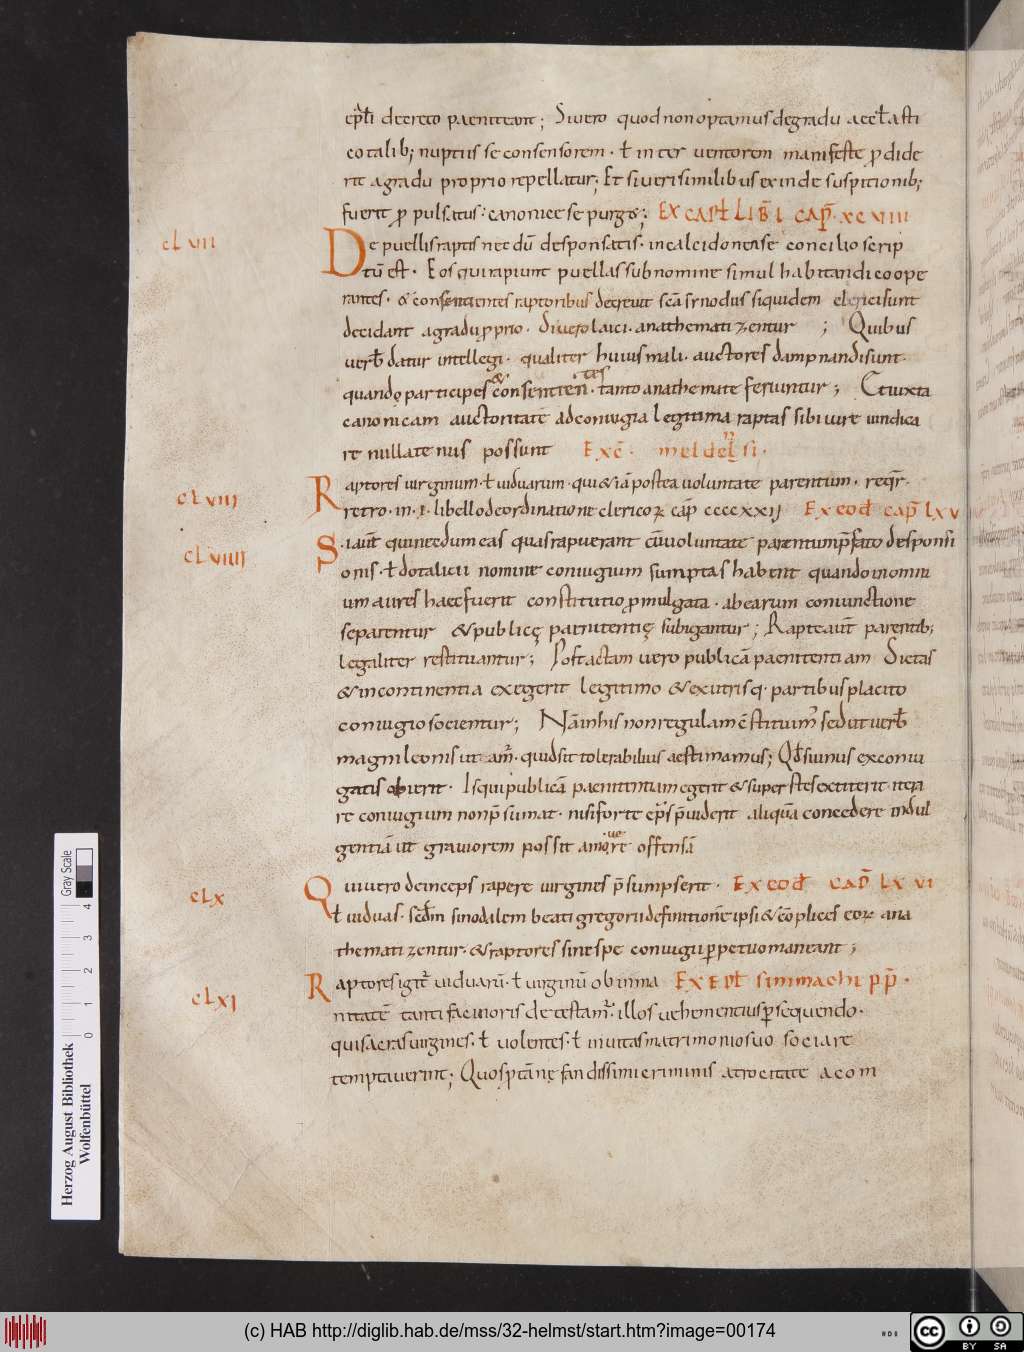 ep̄li decreto paeniteant; Si vero quod non optamus degradu aecƚasti
co talib; nuptiis se consensorem · ƚ in ter ventorem manifeste ꝑdide
rit agradu proprio repellatur; Et si veri similibus exinde suspitionib;
fuerit ꝑpulsatus: canonice se purg&; EX CAPƚ LIB̄ I CAP̄. XCVIIII
CLVII
De puellis raptis nec dū desponsatis · in calcidonense concilio scrip
tū est · Eos qui rapiunt puellas sub nomine simul habitandi coope
rantes · & consentientes raptoribus decrevit scā synodus siquidem clerici sunt
decidant agradu ꝓprio · Si vero laici · anathematizentur ; Quibus
verƀ datur intellegi · qualiter huius mali · auctores dampnandi sunt ·
quandę participes & consentientes · tanto anathemate feriuntur; Et iuxta
canonicam auctoritatē ad coniugia legitima raptas sibi iure vindica
re nullatenus possunt EX C̄ · meldensi ·
CLVIII
Raptores virginum · ƚ viduarum · qui & iā postea voluntate parentum · reqr̄ ·
retro · in · I · libello de ordinatione clericoꝝ cap̄ ccccxxij EX eod cap̄ LXV
CLVIIII
Si aut̄ qui necdum eas quas rapuerant cū voluntate parentum p̄fato desponsi
onis · ƚ dotalicii nomine coniugium sumptas habent quando in omni
um aures haec fuerit constitutio ꝓmulgata · ab earum coniunctione
separentur & publicę paenitentię subigantur; Raptę aut̄ parentib;
legaliter restituantur; Post actam vero publicā paenitentiam Si etas
& incontinentia exegerit legitimo & ex utrisq · partibus placito
coniugio socientur; Nā in his non regulam c̄stituim̄ sed ut verƀ
magni leonis ut am̄ · quid sit tolerabilius aestimamus; Qd̄ si unus ex coniu
gatis obierit · Is qui publicā paenitentiam egerit & superstes extiterit · itera
re coniugium non p̄sumat · nisi forte ep̄s p̄viderit aliquā concedere indul
gentiā ut graviorem possit amovere offensā
CLX
Qui vero deinceps rapere virgines p̄sumpserit · EX eod CAP̄ LXVI
ƚ viduas · scd̄m sinodalem beati gregorii definitionē ipsi & cōplices eoꝝ ana
thematizentur · & raptores sine spe coniugii ꝑpetuo maneant ;
CLXI
Raptores igit̄ viduarū · ƚ virginū ob inma EX EPƚ simmachi pp̄ ·
nitatē tanti facinoris detestam̄: illos vehementius ꝑsequendo ·
qui sacras virgines · ƚ volentes · ƚ invitas matrimonio suo sociare
temptaverint; Quos ꝓ tā nefandissimi criminis atrocitate a com
Herzog August Bibliothek
Wolfenbüttel
0 1 2 3 4
Gray Scale
(c) HAB http://diglib.hab.de/mss/32-helmst/start.htm?image=00174
cc BY SA